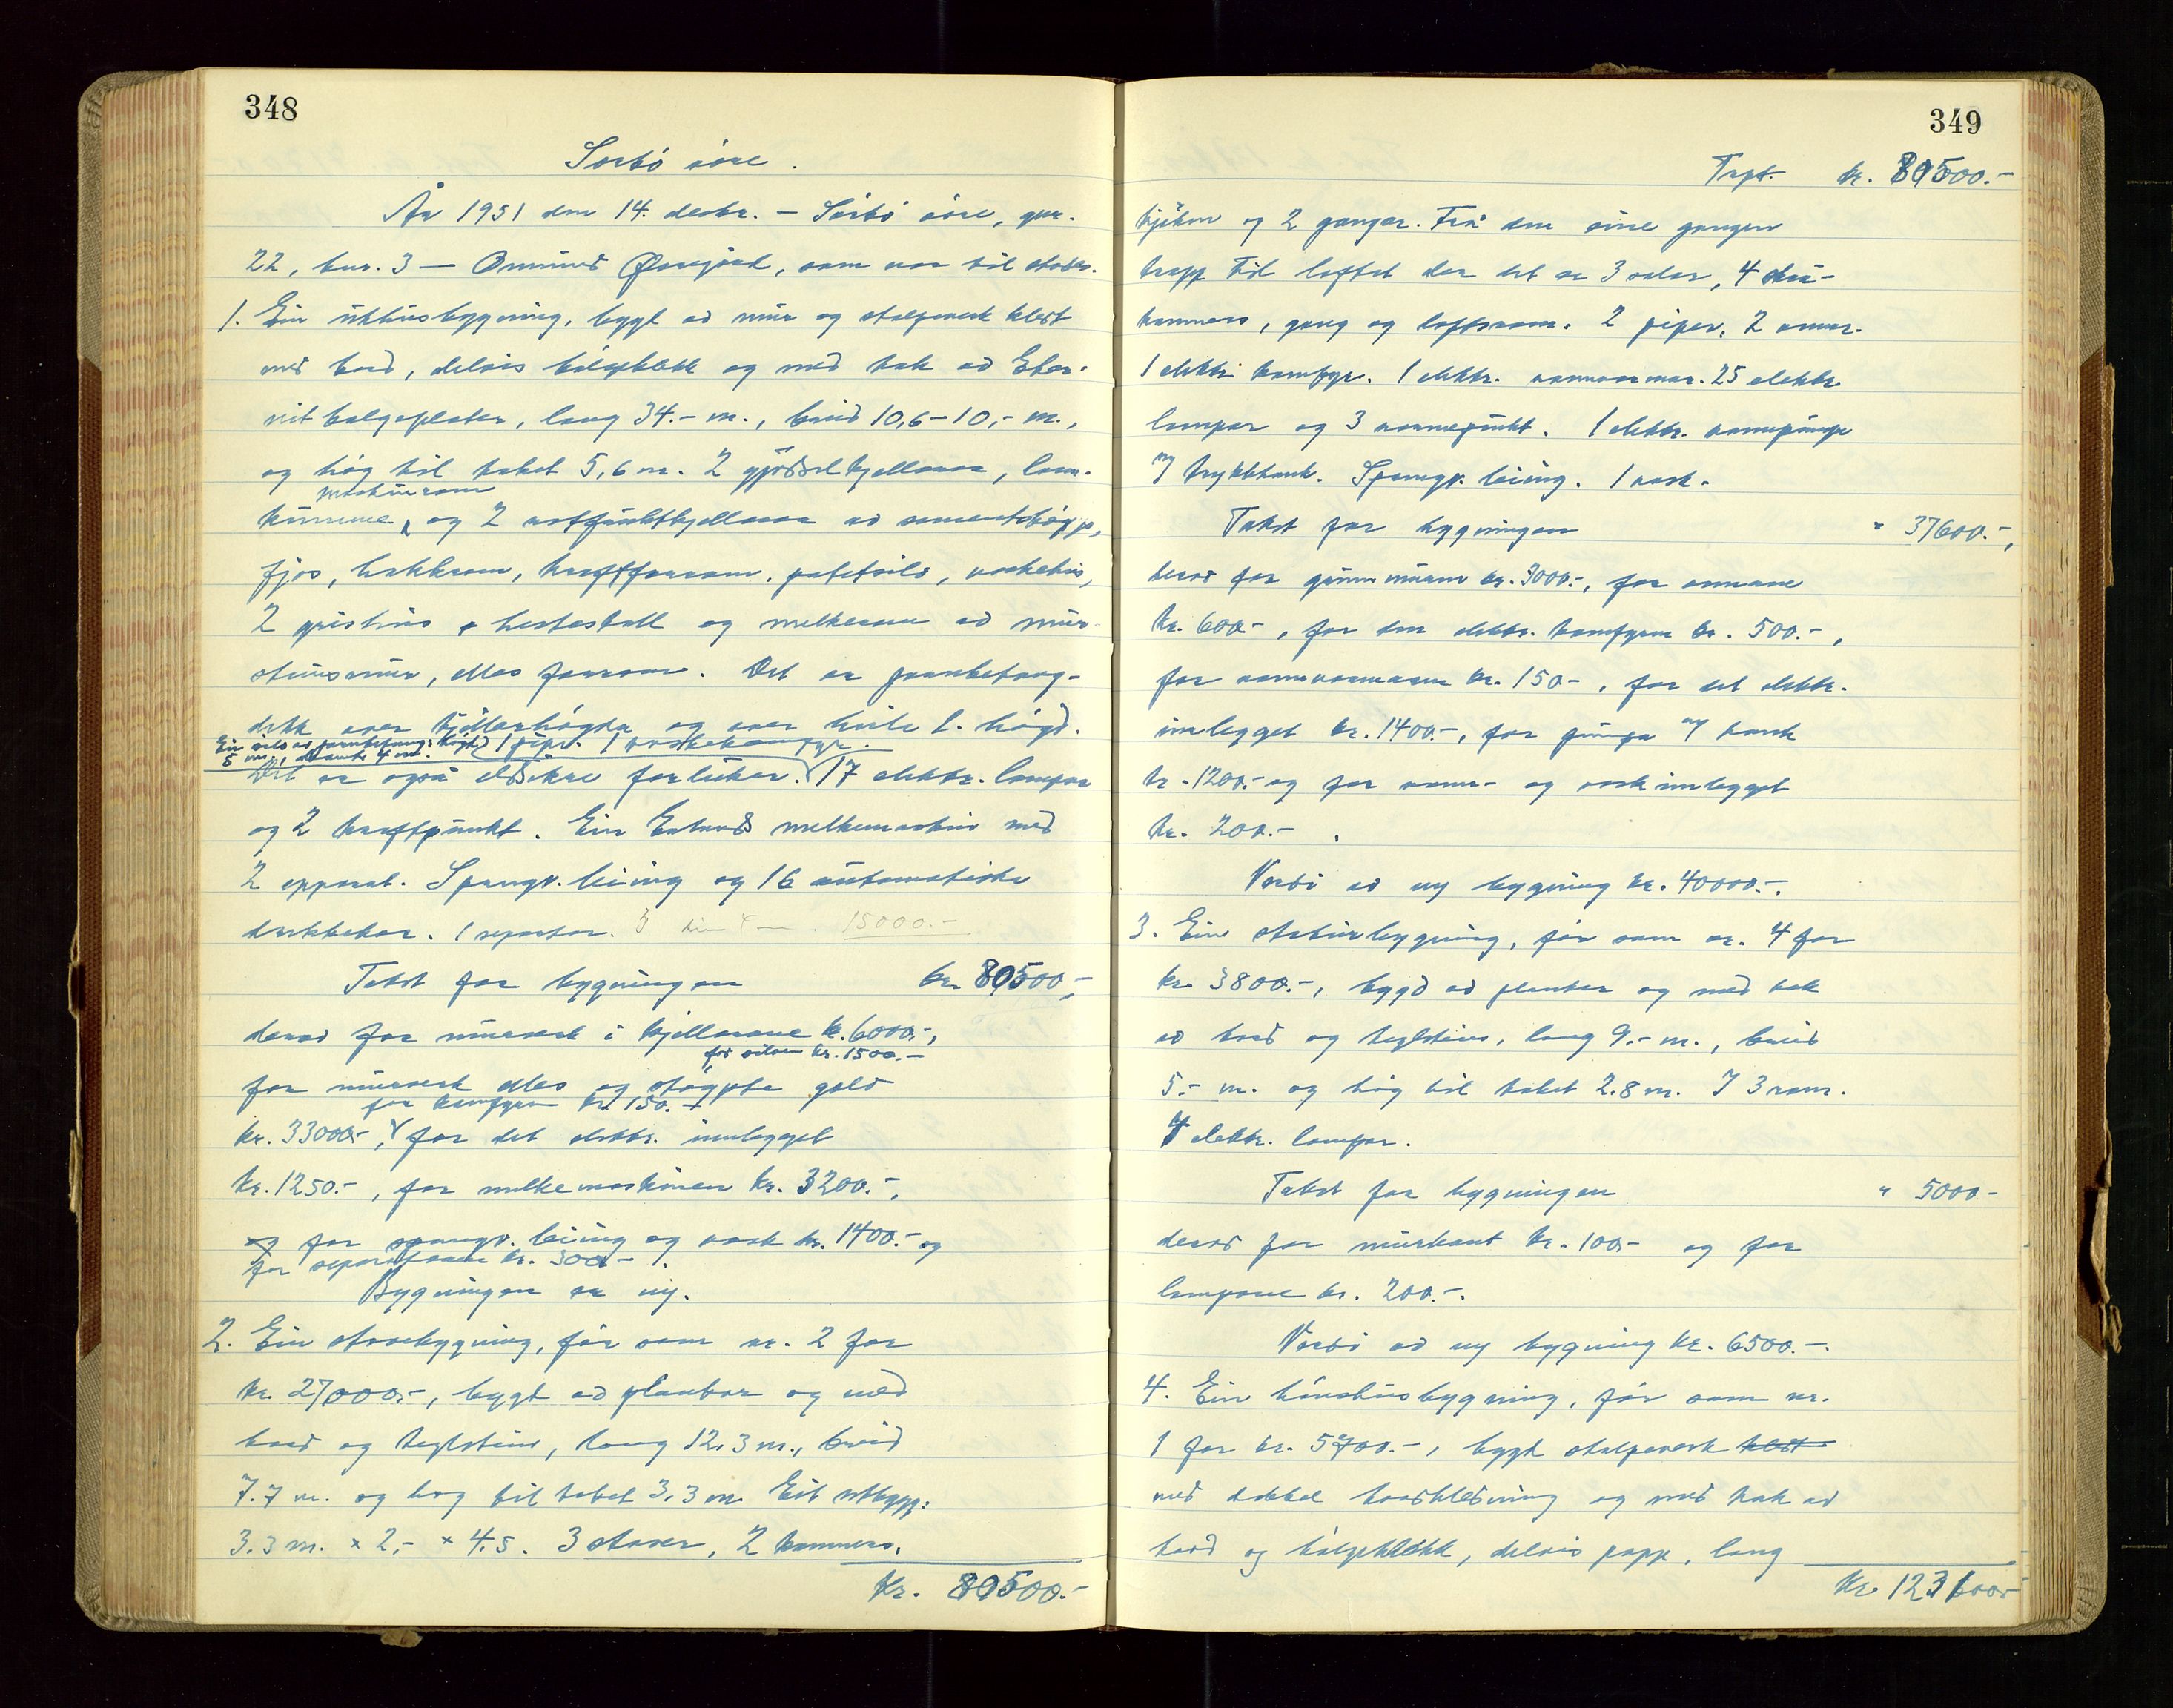 348
Sørbø øvre.
År 1951 den 14. desbr. – Sørbø øvre, gnr.
22, bnr. 3 — Ommund, som var til stades.
1. Ein uthusbygning, bygt av mur og stolpeverk kledt
med bord, delvis bølgeblekk og med tak av Eter-
nit bølgeplater, lang 34.- m., breid 10,6-10,- m.,
og høg til taket 5,6 m. 2 gjødselkjellarar, land-
kumme, maskinrom og 2 rotfruktkjellarar av sementstøyp,
fjos, hakkrom, kraftforrom, potetsilo, vaskehus,
2 grishus, hestestall og melkerom av mur-
steinsmur, elles forrom. Det er jernbetong-
dekk over kjellarhøgda og over heile 1. høgd.
Ein silo av jernbetong: høgd
5 m., diameter 4 m. 1 pipe. 1 vaskekomfyr.
Det er også eldsikre forluker. 17 elektr. lampor
og 2 kraftpunkt. Ein melkemaskin med
2 apparat. Spring. leiing og 16 automatiske
drikkekar. 1 separator. 3 15000.-
Takst for bygningen kr. 80500.-,
derav for murverk i kjellarane kr. 6000.-,
for siloen kr. 1500.-
for murverk elles og støypte golv
for komfyren kr. 150.-
kr. 33000.-, for det elektr. innlegget
kr. 1250.-, for melkemaskinen kr. 3200.-,
og for spring. leiing og vask kr. 1400.- og
for separatoren kr. 300.-.
Bygningen er ny.
2. Ein stovebygning, før som nr. 2 for
kr. 27000.-, bygt av plankar og med
bord og teglstein, lang 12,3 m., breid
7.7 m. og høg til taket 3,3 m. Eit utbygg:
3.3 m. x 2,- x 4.5. 3 stover, 2 kammers,
Kr. 80500.-
349
Trpt. kr. 80500.-
kjøken og 2 gangar. Frå den eine gangen
trapp til loftet der det er 3 salar, 4 små-
kammers, gang og loftsrom. 2 piper, 2 omnar.
1 elektr. komfyr. 1 elektr. vannvarmar. 25 elektr.
lampor og 3 varmepunkt. 1 elektr. vannpumpe
m/ trykktank. Spring. leiing. 1 vask.
Takst for bygningen " 37600.-,
derav for grunnmuren kr. 3000.-, for omnane
kr. 600.-, for den elektr. komfyren kr. 500.-,
for vannvarmaren kr. 150.-, for det elektr.
innlegget kr. 1400.-, for pumpa m/ tank
kr. 1200.- og for vann- og vaskinnlegget
kr. 200.-.
Verdi av ny bygning kr. 40000.-.
3. Ein stabursbygning, før som nr. 4 for
kr. 3800.-, bygd av plankar og med tak
av bord og teglstein, lang 9.- m., breid
5.- m. og høg til taket 2.8 m. I 3 rom.
4 elektr. lampor.
Takst for bygningen " 5000.-
derav for murkant kr. 100.- og for
lampone kr. 200.-.
Verdi av ny bygning kr. 6500.-.
4. Ein hønehusbygning, før som nr.
1 for kr. 5700.-, bygt stolpeverk kledt
med dobbel bordkledning og med tak av
bord og bølgeblekk, delvis papp, lang
Kr. 123100.-